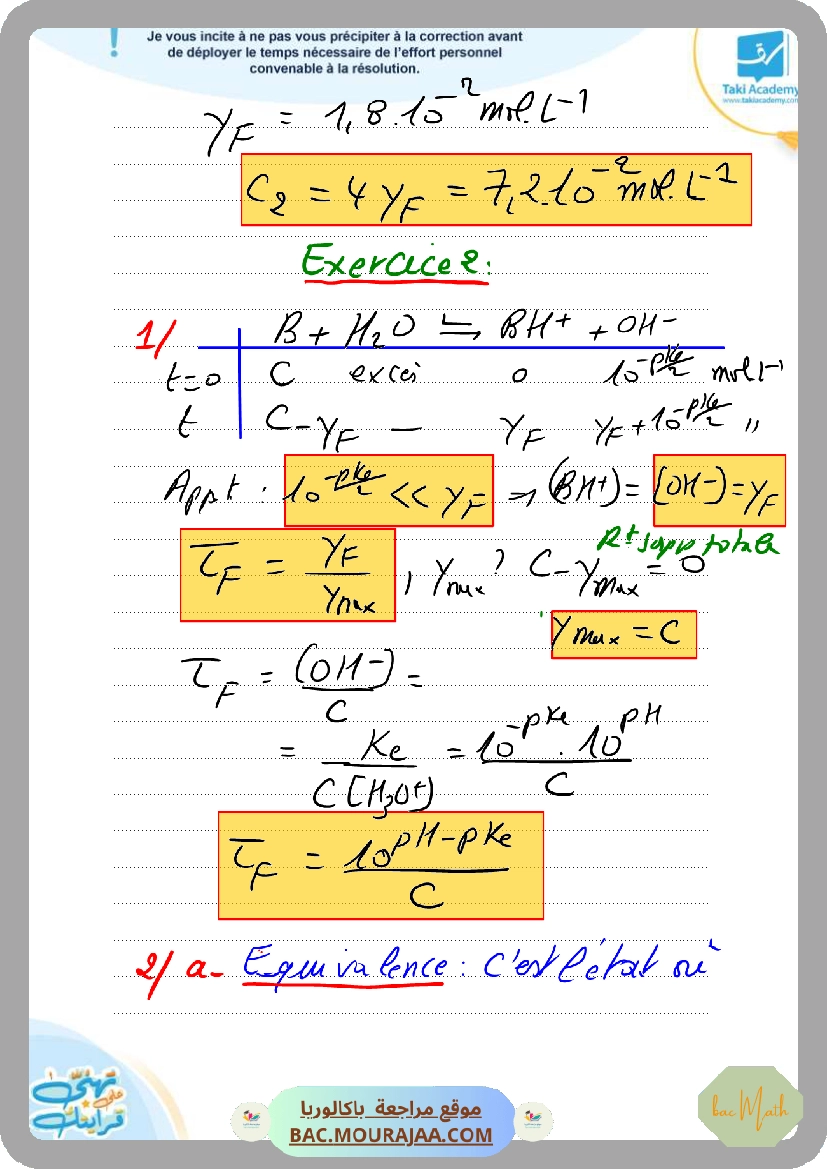 Je vous incite à ne pas vous précipiter à la correction avant
de déployer le temps nécessaire de l'effort personnel
convenable à la résolution.
Taki Academy
www.takiacademy.com
y_F = 1,8.10^-2 mol.L^-1
C_2 = 4 y_F = 7,2.10^-2 mol.L^-1
Exercice 2:
1/ B + H_2O ⇌ BH^+ + OH^-
t=0 C excès 0 10^(-pKe/2) mol L^-1
t C-y_F — y_F y_F+10^(-pKe/2) "
Appt : 10^(-pKe/2) << y_F ⇒ [BH^+] = [OH^-] = y_F
τ_F = y_F / y_max , y_max ? C-y_max = 0
R^t supp totale
y_max = C
τ_F = [OH^-] / C =
= Ke / C[H_3O^+] = 10^-pKe . 10^pH / C
τ_F = 10^(pH-pKe) / C
2/ a- Equivalence : C'est l'état où
تهنّى
على
قرايتك
موقع مراجعة باكالوريا
BAC.MOURAJAA.COM
bac Math